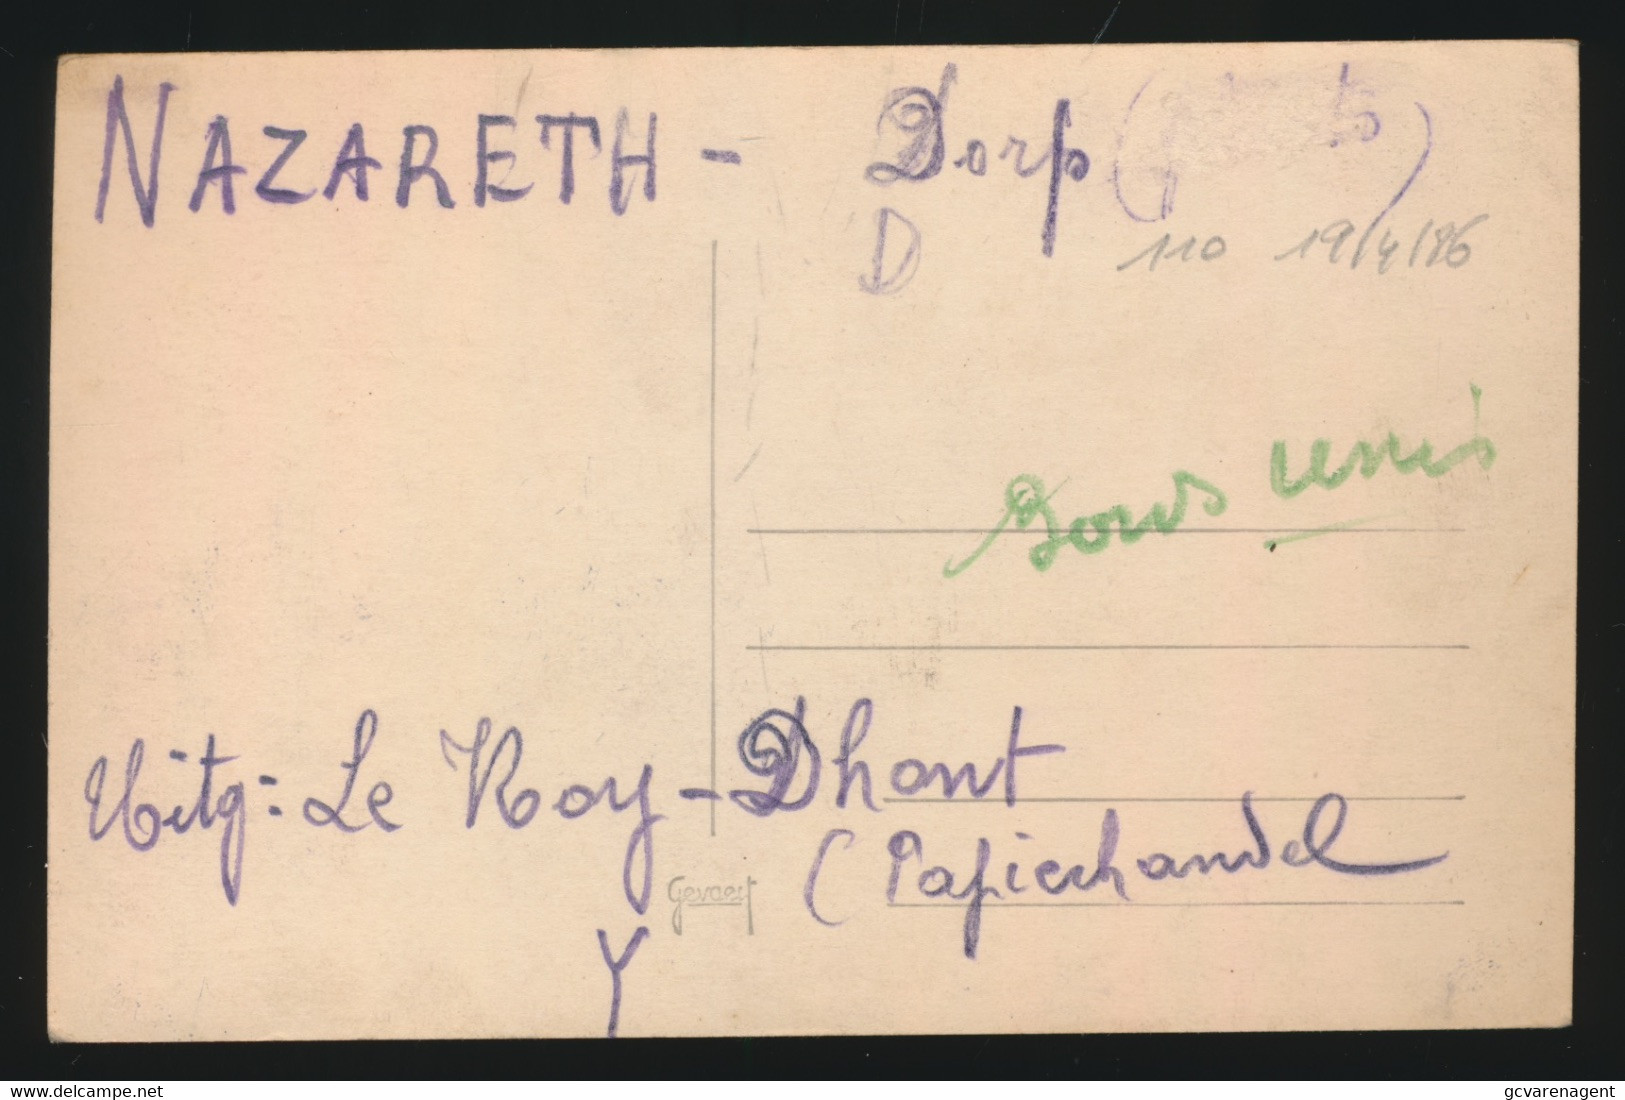 NAZARETH - Dorp (
D
110 19/4/86
Bords unis
Uitg: Le Roy - Dhont
(Papierhandel
Gevaert
Y
delcampe.net
gcvarenagent